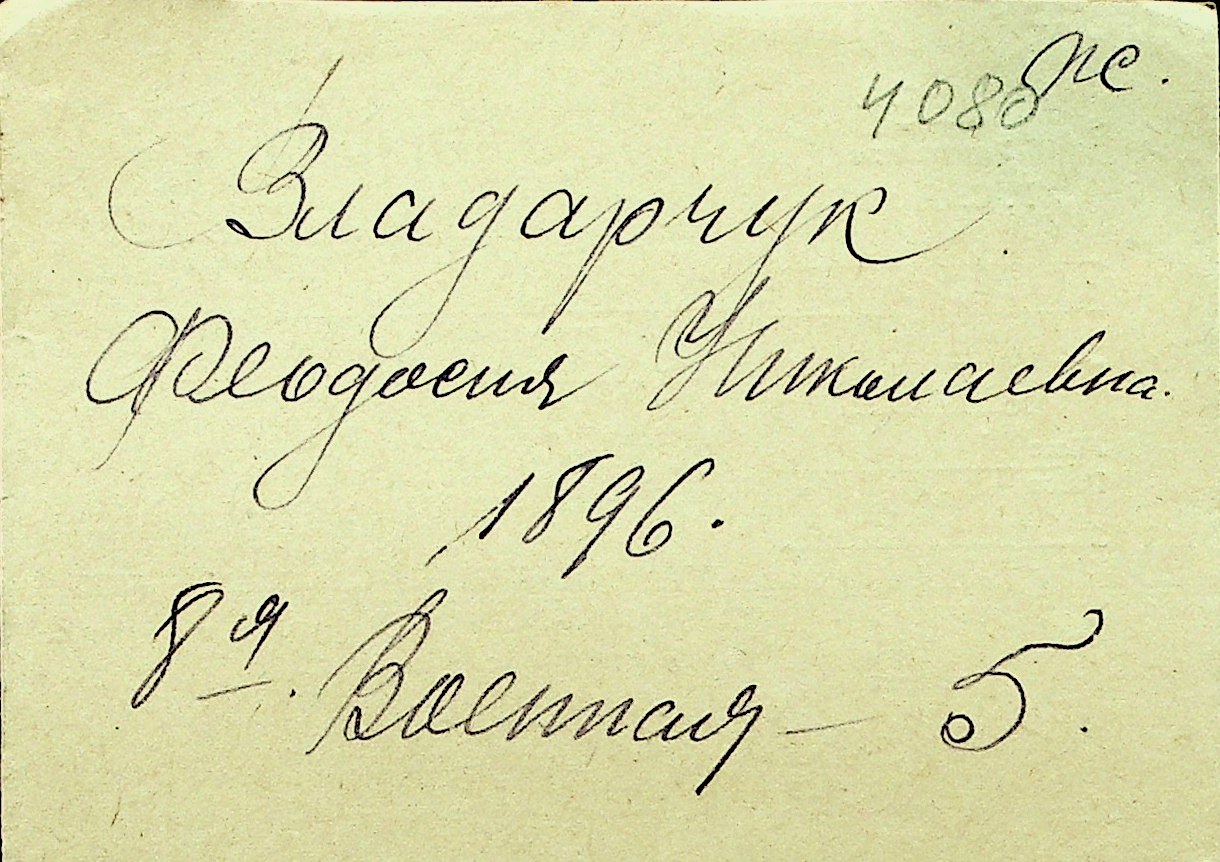 4080 пс.
Владарчук
Феодосия Николаевна.
1896.
8я. Военная – 5.